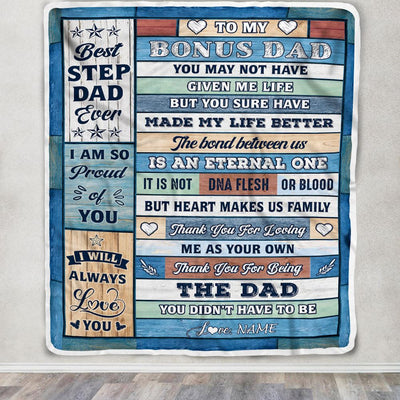 Best
STEP
DAD
Ever
I AM SO
Proud
of
YOU
I WILL
ALWAYS
Love
YOU
TO MY
BONUS DAD
YOU MAY NOT HAVE
GIVEN ME LIFE
BUT YOU SURE HAVE
MADE MY LIFE BETTER
The bond between us
IS AN ETERNAL ONE
IT IS NOT DNA FLESH OR BLOOD
BUT HEART MAKES US FAMILY
Thank You For Loving
ME AS YOUR OWN
Thank You For Being
THE DAD
YOU DIDN'T HAVE TO BE
Love, NAME